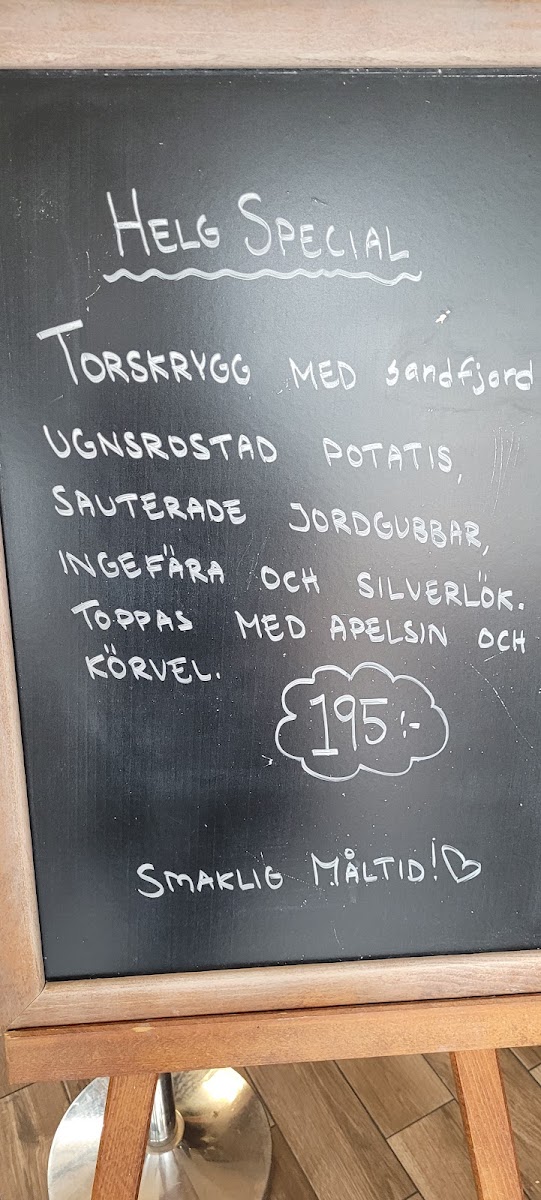 HELG SPECIAL
TORSKRYGG MED sandfjord
UGNSROSTAD POTATIS,
SAUTERADE JORDGUBBAR,
INGEFÄRA OCH SILVERLÖK.
TOPPAS MED APELSIN OCH
KÖRVEL.
195:-
SMAKLIG MÅLTID!♡